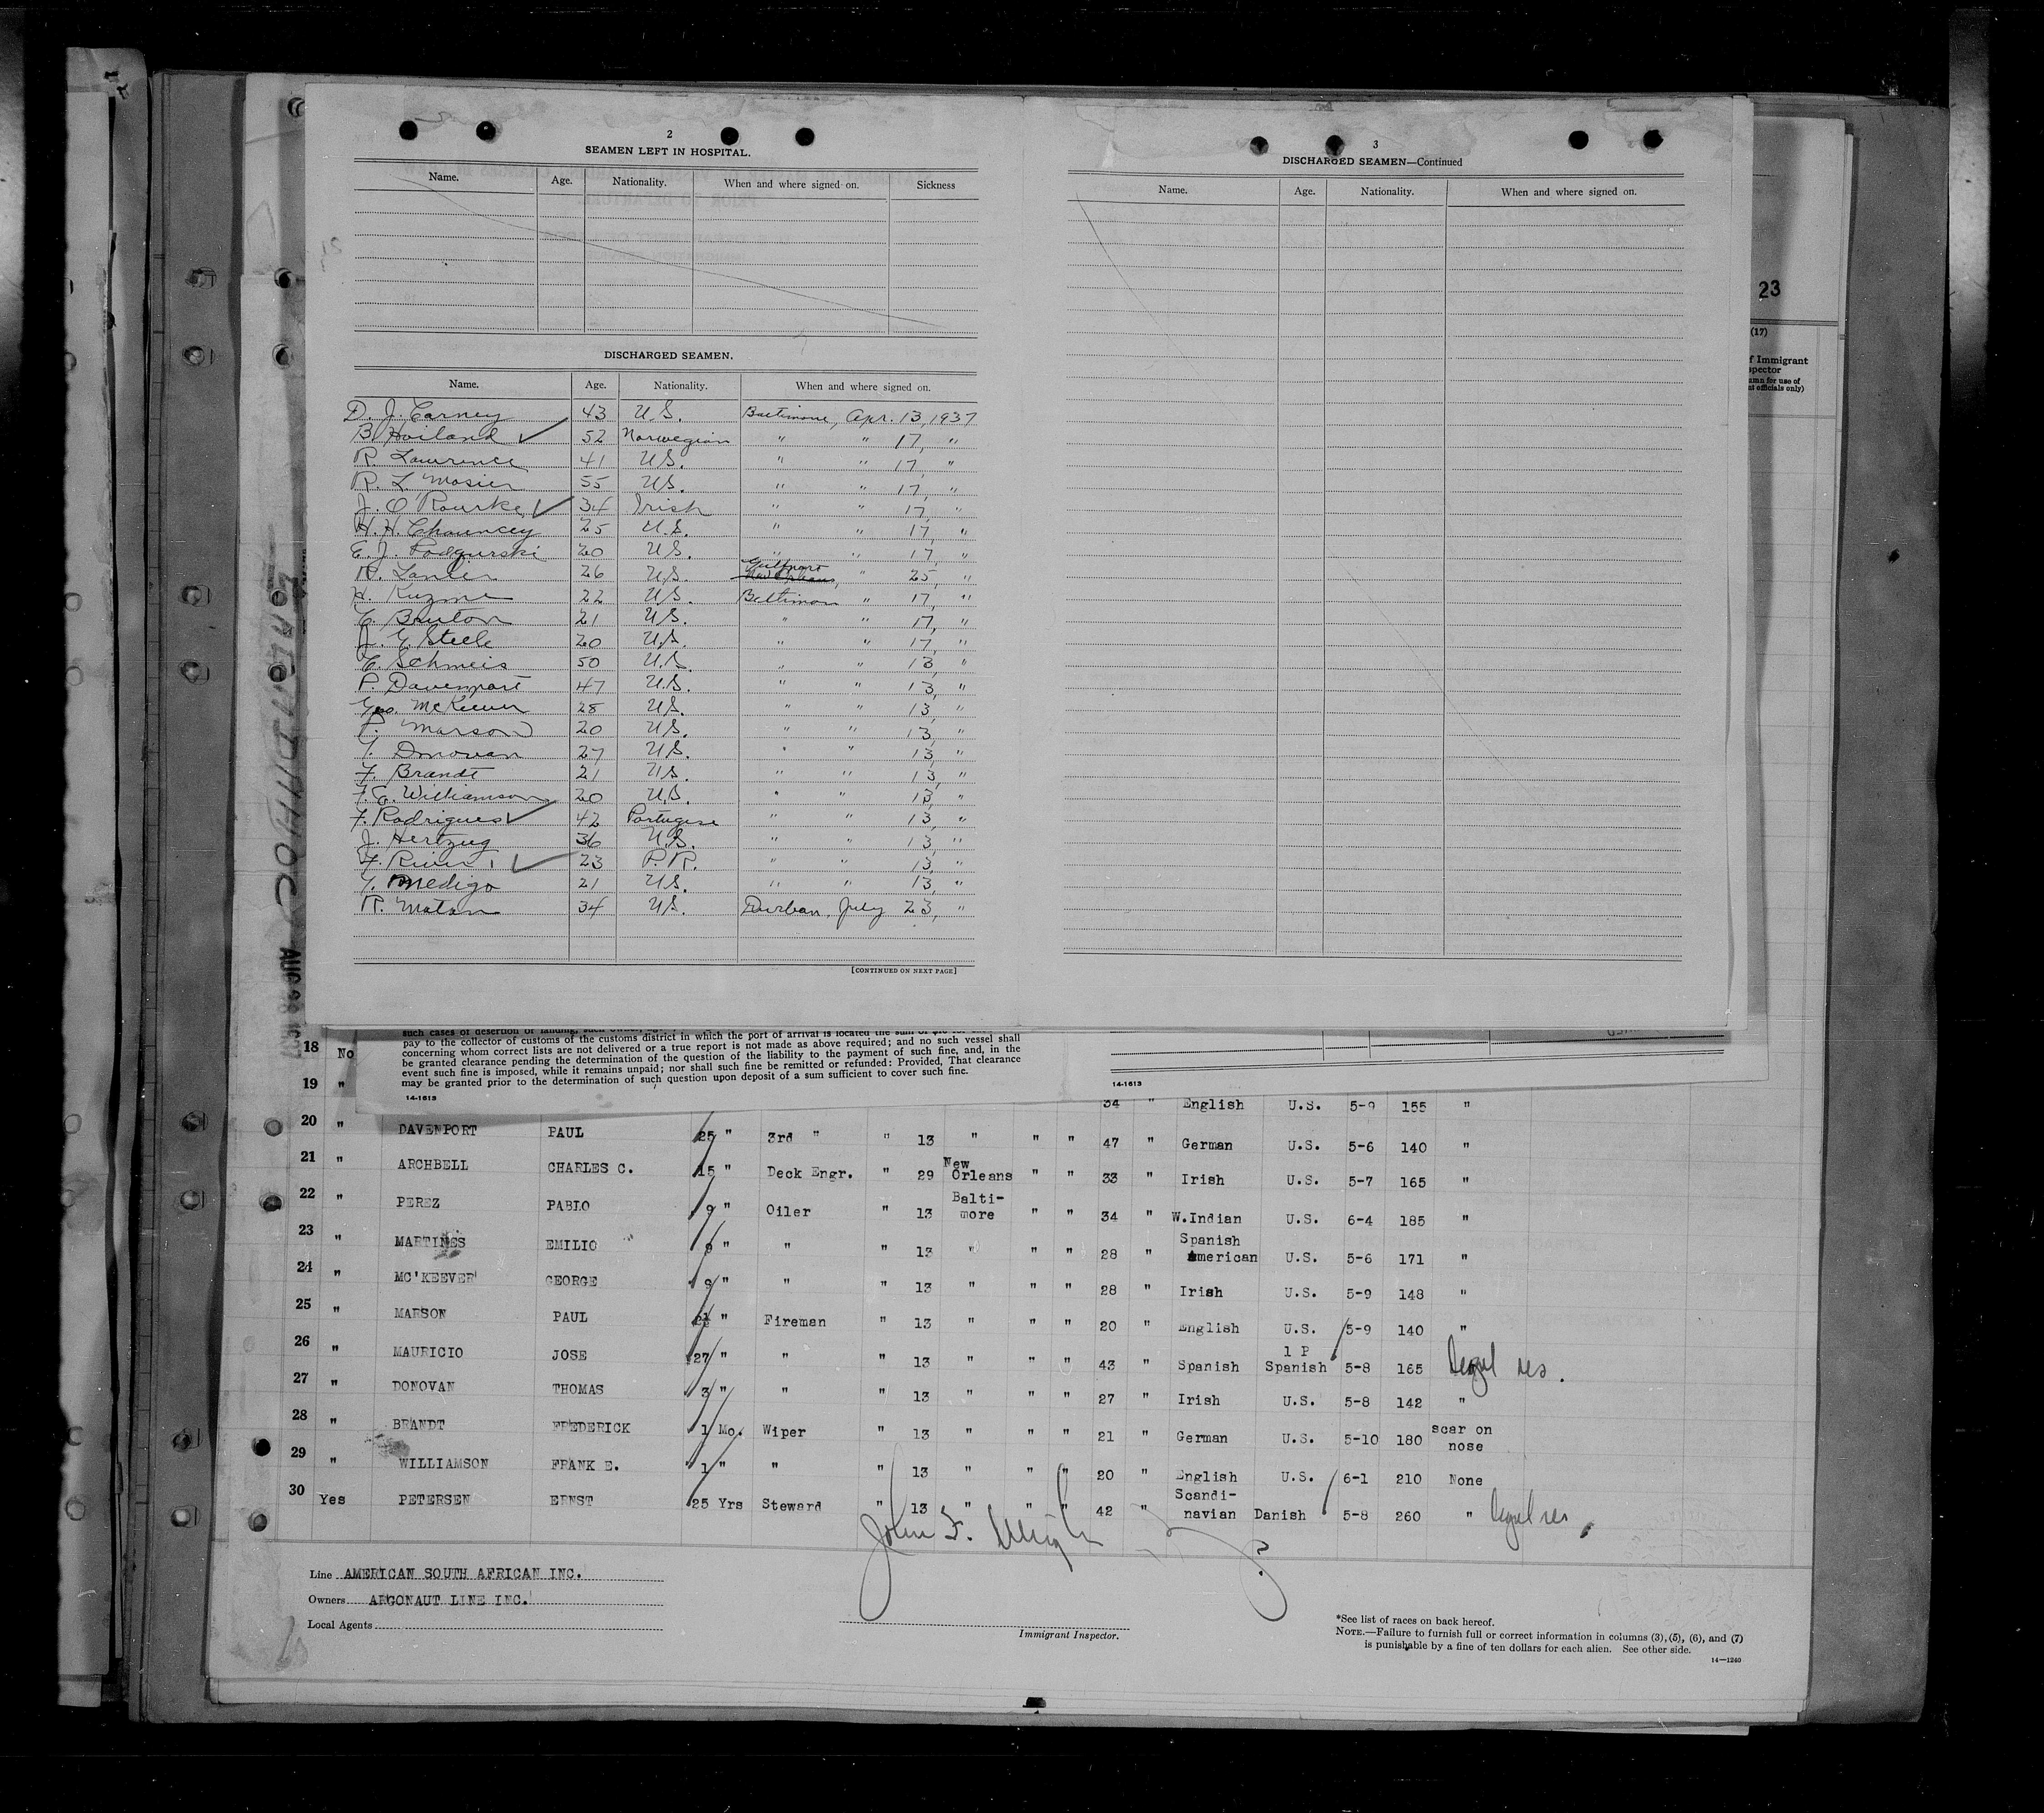 2
SEAMEN LEFT IN HOSPITAL.
Name. Age. Nationality. When and where signed on. Sickness
DISCHARGED SEAMEN.
Name. Age. Nationality. When and where signed on.
D. J. Carney 43 U.S. Baltimore, Apr. 13, 1937
B. Hoiland ✓ 52 Norwegian " " 17, "
R. Lawrence 41 U.S. " " 17, "
R. L. Mosier 55 U.S. " " 17, "
J. O'Rourke ✓ 34 Irish " " 17, "
H. H. Chauncey 25 U.S. " " 17, "
E. J. Podgurski 20 U.S. " " 17, "
R. Lanier 26 U.S. Gulfport New Orleans, " 25, "
H. Kuzma 22 U.S. Baltimore " 17, "
C. Bruton 21 U.S. " " 17, "
J. E. Steele 20 U.S. " " 17, "
E. Schmeis 50 U.S. " " 13, "
P. Davenport 47 U.S. " " 13, "
Geo. McKeever 28 U.S. " " 13, "
P. Marson 20 U.S. " " 13, "
T. Donovan 27 U.S. " " 13, "
F. Brandt 21 U.S. " " 13, "
F. E. Williamson 20 U.S. " " 13, "
F. Rodrigues ✓ 42 Portugese " " 13, "
J. Hertzug 36 U.S. " " 13, "
F. Rivera ✓ 23 P.R. " " 13, "
T. Medigo 21 U.S. " " 13, "
R. Matan 34 U.S. Durban, July 23, "
[CONTINUED ON NEXT PAGE]
3
DISCHARGED SEAMEN—Continued
Name. Age. Nationality. When and where signed on.
23
(17)
f Immigrant
spector
umn for use of
nt officials only)
pay to the collector of customs of the customs district in which the port of arrival is located the sum of
concerning whom correct lists are not delivered or a true report is not made as above required; and no such vessel shall
be granted clearance pending the determination of the question of the liability to the payment of such fine, and, in the
event such fine is imposed, while it remains unpaid; nor shall such fine be remitted or refunded: Provided, That clearance
may be granted prior to the determination of such question upon deposit of a sum sufficient to cover such fine.
14-1613
14-1613
18 No
19 " 34 " English U.S. 5-9 155 "
20 " DAVENPORT PAUL 25 " 3rd " " 13 " " " 47 " German U.S. 5-6 140 "
21 " ARCHBELL CHARLES C. 15 " Deck Engr. " 29 New Orleans " " 33 " Irish U.S. 5-7 165 "
22 " PEREZ PABLO 9 " Oiler " 13 Balti-more " " 34 " W.Indian U.S. 6-4 185 "
23 " MARTINES EMILIO 9 " " " 13 " " " 28 " Spanish American U.S. 5-6 171 "
24 " MC'KEEVER GEORGE 9 " " " 13 " " " 28 " Irish U.S. 5-9 148 "
25 " MARSON PAUL " Fireman " 13 " " " 20 " English U.S. 5-9 140 "
26 " MAURICIO JOSE 27 " " " 13 " " " 43 " Spanish 1 P Spanish 5-8 165 Legal res.
27 " DONOVAN THOMAS 3 " " " 13 " " " 27 " Irish U.S. 5-8 142 "
28 " BRANDT FREDERICK 1 Mo. Wiper " 13 " " " 21 " German U.S. 5-10 180 scar on nose
29 " WILLIAMSON FRANK E. 1 " " " 13 " " " 20 " English U.S. 6-1 210 None
30 Yes PETERSEN ERNST 25 Yrs Steward " 13 " " " 42 " Scandi-navian Danish 5-8 260 " Legal res.
John F.
Line AMERICAN SOUTH AFRICAN INC.
Owners ARGONAUT LINE INC.
Local Agents
Immigrant Inspector.
*See list of races on back hereof.
NOTE.—Failure to furnish full or correct information in columns (3), (5), (6), and (7)
is punishable by a fine of ten dollars for each alien. See other side.
14—1240